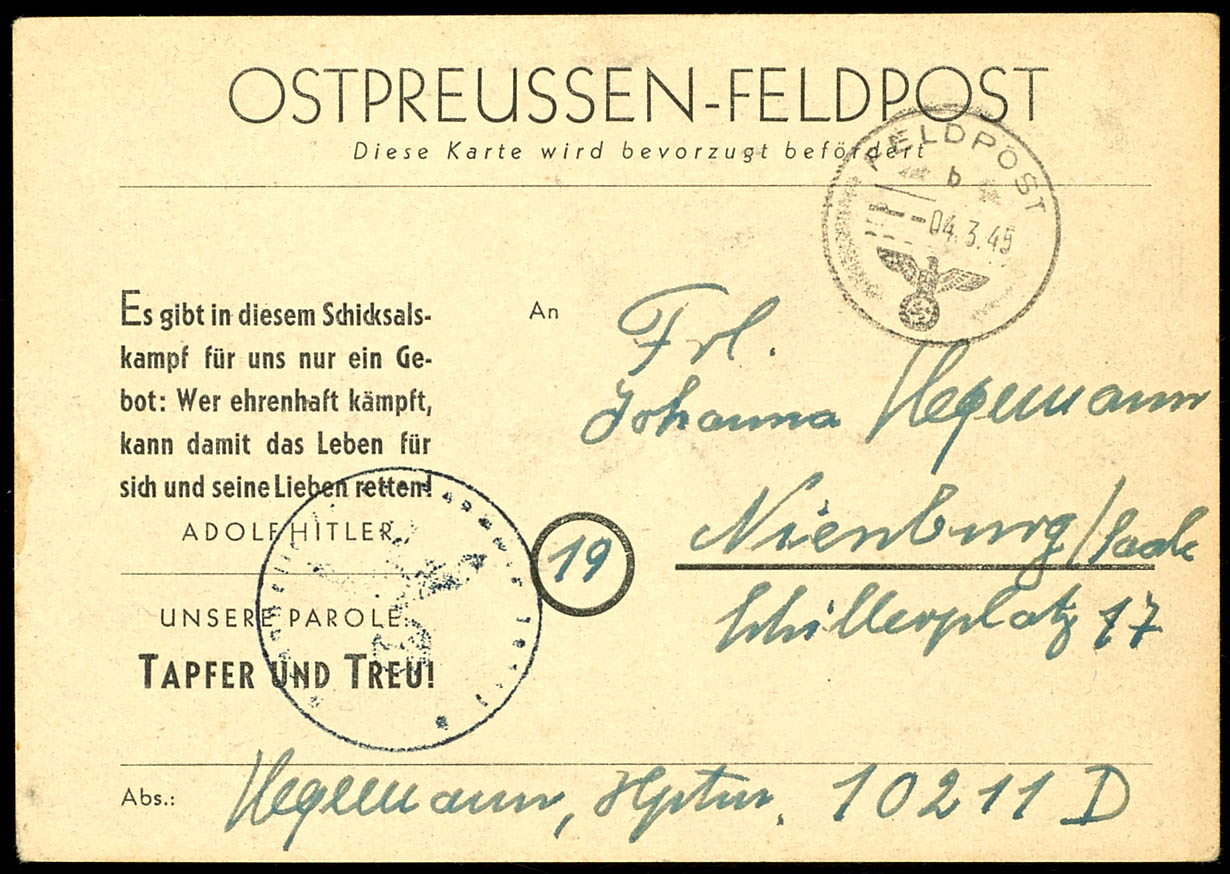 OSTPREUSSEN-FELDPOST
Diese Karte wird bevorzugt befördert
FELDPOST
b
04.3.45
Es gibt in diesem Schicksals-
kampf für uns nur ein Ge-
bot: Wer ehrenhaft kämpft,
kann damit das Leben für
sich und seine Lieben retten!
ADOLF HITLER
UNSERE PAROLE:
TAPFER UND TREU!
An
Frl.
Johanna Hegemann
19
Nienburg/Saale
Schillerplatz 17
Abs.: Hegemann, Hptm. 10211 D